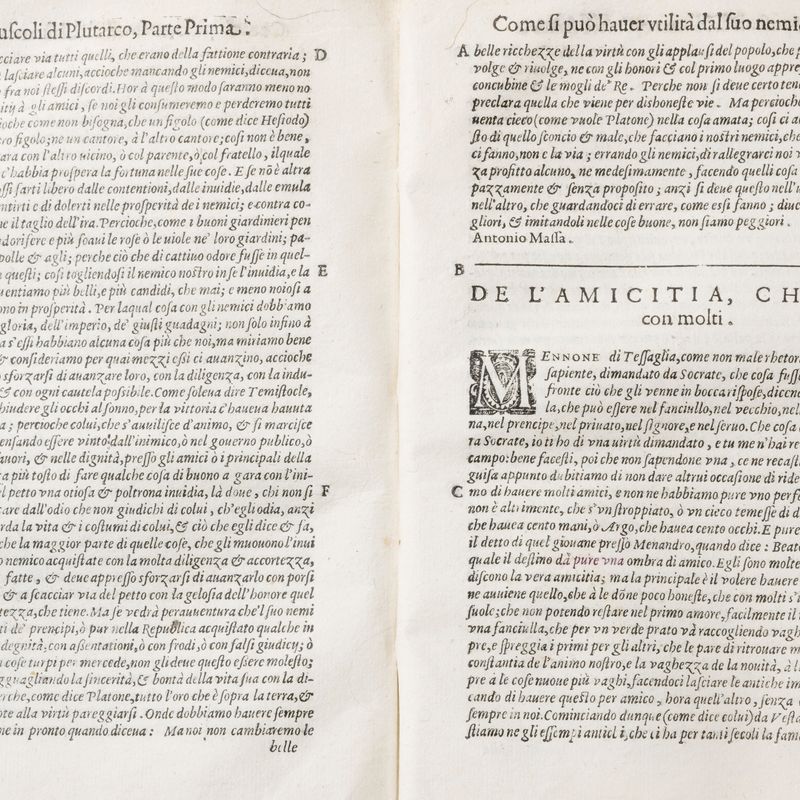 uscoli di Plutarco, Parte Prima.
cciare via tutti quelli, che erano della fattione contraria; D
lasciare alcuni, accioche mancando gli nemici, diceua, non
fra noi stessi discordi. Hor à questo modo saranno meno no
à gli amici, se noi gli consumeremo e perderemo tutti
ioche come non bisogna, che un figolo (come dice Hesiodo)
ro figolo; ne un cantore, à l'altro cantore; cosi non è bene,
ara con l'altro uicino, ò col parente, ò col fratello, il quale
c'habbia prospera la fortuna nelle sue cose. E se nõ è altra
ssi farti libero dalle contentioni, dalle inuidie, dalle emula
ntirti e di dolerti nelle prosperità de i nemici; e contra co-
ue il taglio dell'ira. Percioche, come i buoni giardinieri pen
dorifere e più soaui le rose ò le uiole ne' loro giardini; pa-
polle & agli; perche ciò che di cattiuo odore fusse in quel-
questi; cosi togliendosi il nemico nostro in se l'inuidia, e la E
uentiamo più belli, e più candidi, che mai; e meno noiosi a
ono in prosperità. Per laqual cosa con gli nemici dobbiamo
gloria, dell'imperio, de' giusti guadagni; non solo infino à
a s'essi habbiano alcuna cosa più che noi, ma miriamo bene
& consideriamo per quai mezzi essi ci auanzino, accioche
sforzarsi di auanzare loro, con la diligenza, con la indu-
& con ogni cautela possibile. Come soleua dire Temistocle,
hiudere gli occhi al sonno, per la vittoria c'haueua hauuta
a; percioche colui, che s'auuilisce d'animo, & si marcisce
ensando essere vinto dall'inimico, ò nel gouerno publico, ò
fauori, & nelle dignità, presso gli amici ò i principali della
a più tosto di fare qualche cosa di buono a gara con l'ini-
l petto vna otiosa & poltrona inuidia, là doue, chi non si F
care dall'odio che non giudichi di colui, ch'egli odia, anzi
rda la vita & i costumi di colui, & ciò che egli dice & fa,
che la maggior parte di quelle cose, che gli muouono l'inui
o nemico acquistate con la molta diligenza & accortezza,
fatte, & deue appresso sforzarsi di auanzarlo con porsi
& a scacciar via del petto con la gelosia dell'honore quel
tezza, che tiene. Ma se vedrà perauuentura che'l suo nemi
ti de' prencipi, ò pur nella Republica acquistato qualche in
degnità, con assentationi, ò con frodi, ò con falsi giudicij; ò
cose turpi per mercede, non gli deue questo essere molesto;
gguagliando la sincerità, & bontà della vita sua con la di-
erche, come dice Platone, tutto l'oro che è sopra la terra, &
ote alla virtù pareggiarsi. Onde dobbiamo hauere sempre
ne in pronto quando diceua: Ma noi non cambiaremo le
belle
Come si può hauer vtilità dal suo nemic
A belle ricchezze della virtù con gli applausi del popolo, che p
volge & riuolge, ne con gli honori & col primo luogo appre
concubine & le mogli de' Re. Perche non si deue certo ten
preclara quella che viene per dishoneste vie. Ma percioche
uenta cieco (come vuole Platone) nella cosa amata; cosi ci ac
sto di quello sconcio & male, che facciano i nostri nemici, che
ci fanno, non e la via; errando gli nemici, di rallegrarci noi
za profitto alcuno, ne medesimamente, facendo quelli cosa
pazzamente & senza proposito; anzi si deue questo nell'u
nell'altro, che guardandoci di errare, come essi fanno; diue
gliori, & imitandoli nelle cose buone, non siamo peggiori.
Antonio Massa.
B
DE L'AMICITIA, CH
con molti.
MENNONE di Tessaglia, come non male rhetor
sapiente, dimandato da Socrate, che cosa fusse
fronte ciò che gli venne in bocca rispose, dicend
la, che può essere nel fanciullo, nel vecchio, nel
na, nel prencipe, nel priuato, nel signore, e nel seruo. Che cosa
ra Socrate, io ti ho di vna uirtù dimandato, e tu me n'hai re
campo: bene facesti, poi che non sapendone vna, ce ne recast
guisa appunto dubitiamo di non dare altrui occasione di ride
C mo di hauere molti amici, e non ne habbiamo pure vno perfe
non è altrimente, che s'vn stroppiato, ò vn cieco temesse di d
che hauea cento mani, ò Argo, che hauea cento occhi. E pure
il detto di quel giouane presso Menandro, quando dice: Beato
quale il destino dà pure vna ombra di amico. Egli sono molte
discono la vera amicitia; ma la principale è il volere hauere
ne auuiene quello, che à le dõne poco honeste, che con molti s'i
suole; che non potendo restare nel primo amore, facilmente il
vna fanciulla, che per vn verde prato và raccogliendo vagh
pre, e spreggia i primi per gli altri, che le pare di ritrouare m
constantia de l'animo nostro, e la vaghezza de la nouità, à l
pre à le cose nuoue più vaghi, facendoci lasciare le antiche im
cando di hauere questo per amico, hora quell'altro, senza
sempre in noi. Cominciando dunque (come dice colui) da Vesta
stiamo ne gli essempi antichi, che ci ha per tanti secoli la fam